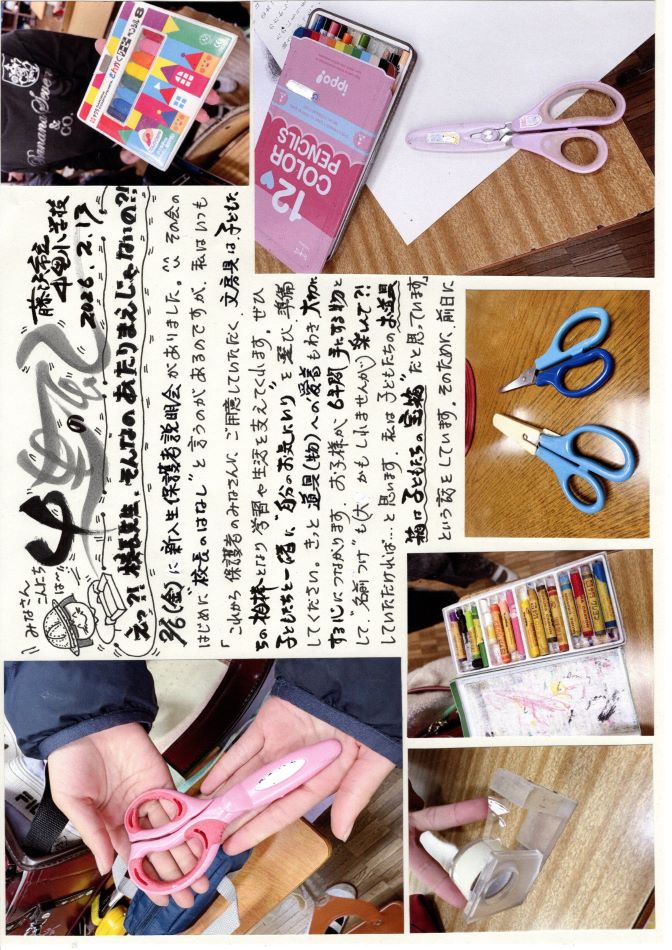 みなさん
こんにち
は〜
の
藤沢市立
小学校
2026.2.17
えっ?! 校長先生、そんなのあたりまえじゃないの?!
2/6(金)に新入生保護者説明会がありました。^^ その会の
はじめに“校長のはなし”と言うのがあるのですが、私はいつも
「これから保護者のみなさんに、ご用意していただく、文房具は、子どもた
ちの相棒となり学習や生活を支えてくれます。ぜひ
子どもたちと一緒に“自分のお気に入り”を選び、準備
してください。きっと道具(物)への愛着もわき大切に
する心につながります。お子様が、6年間手にする物と
して、“名前つけ”も(大 かもしれませんが)楽しんで?!
していただければ…と思います。私は子どもたちのお道具
箱は子どもたちの宝箱”だと思っています」
という話をしています。そのために、前日に
12
COLOR
PENCILS
ippo!
Banana Seven
& CO.
FILA